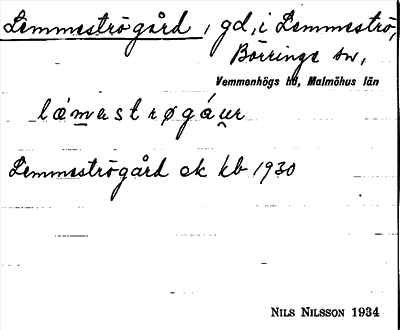 Lemmeströgård, gd, i Lemmeströ,
Börringe sn,
Vemmenhögs hd, Malmöhus län
Lemmeströgård ek kb 1930
NILS NILSSON 1934